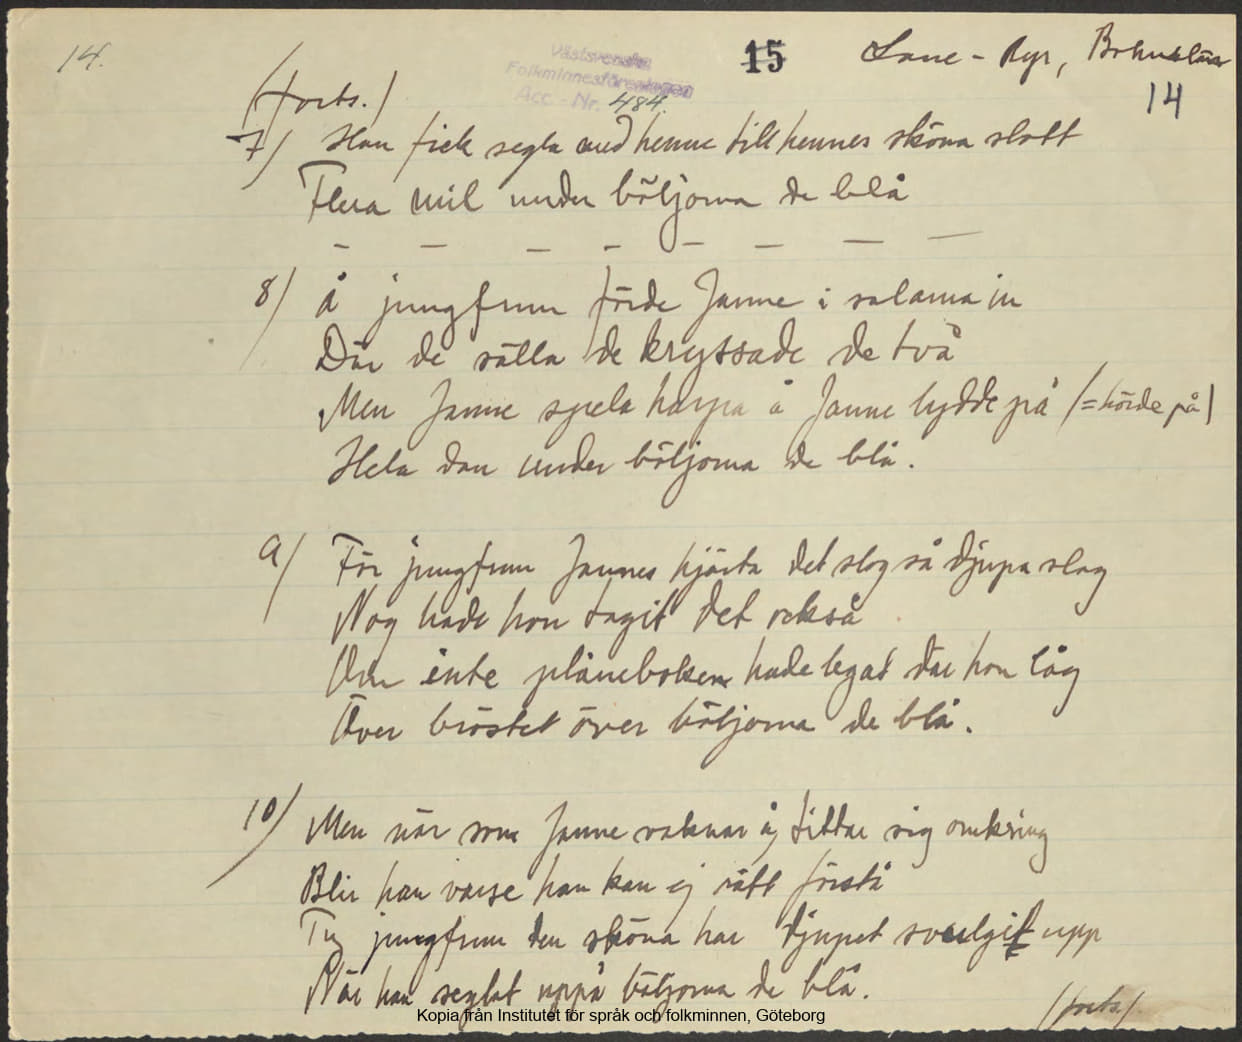 14.
15
Lane-Ryr, Bohuslän
14
Västsvenska
Folkminnesföreningen
Acc. Nr. 484.
(forts.)
7) Han fick segla med henne till hennes sköna slott
Flera mil under böljorna de blå
— — — — — — — —
8) Å jungfrun förde Janne i salarna in
Där de sälla de kryssade de två
Men Janne spela harpa å Janne lydde på (= hörde på)
Hela dan under böljorna de blå.
9) För jungfrun Jannes hjärta det slog så djupa slag
Nog hade hon tagit det också
Om inte plånboken hade legat där hon låg
Över bröstet över böljorna de blå.
10) Men när som Janne vaknar å tittar sig omkring
Blir han varse han kan ej rätt förstå
Ty jungfrun den sköna har djupet svulgit upp
När han seglat uppå böljorna de blå.
(forts.)
Kopia från Institutet för språk och folkminnen, Göteborg